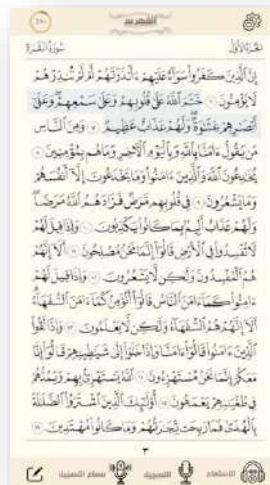 سورة البقرة
الجزء الأول
إن الذين كفروا سواء عليهم ءأنذرتهم أم لم تنذرهم
لا يؤمنون ٦ ختم الله على قلوبهم وعلى سمعهم وعلى
أبصرهم غشوة ولهم عذاب عظيم ٧ ومن الناس
من يقول ءامنا بالله وباليوم الأخر وما هم بمؤمنين ٨
يخدعون الله والذين ءامنوا وما يخدعون إلا أنفسهم
وما يشعرون ٩ في قلوبهم مرض فزادهم الله مرضا
ولهم عذاب أليم بما كانوا يكذبون ١٠ وإذا قيل لهم
لا تفسدوا في الأرض قالوا إنما نحن مصلحون ١١ ألا إنهم
هم المفسدون ولكن لا يشعرون ١٢ وإذا قيل لهم
ءامنوا كما ءامن الناس قالوا أنؤمن كما ءامن السفهاء
ألا إنهم هم السفهاء ولكن لا يعلمون ١٣ وإذا لقوا
الذين ءامنوا قالوا ءامنا وإذا خلوا إلى شيطينهم قالوا إنا
معكم إنما نحن مستهزءون ١٤ الله يستهزئ بهم ويمدهم
في طغينهم يعمهون ١٥ أولئك الذين اشتروا الضللة
بالهدى فما ربحت تجرتهم وما كانوا مهتدين ١٦
٣
الاستماع
التسجيل
سماع التسجيل